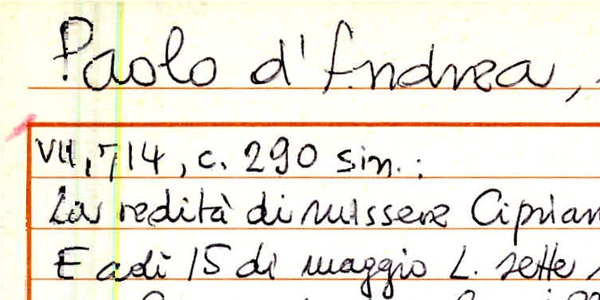 Paolo d'Andrea,
VII, 714, c. 290 sin.:
La redità di missere Ciprian
E adì 15 di maggio L. sette